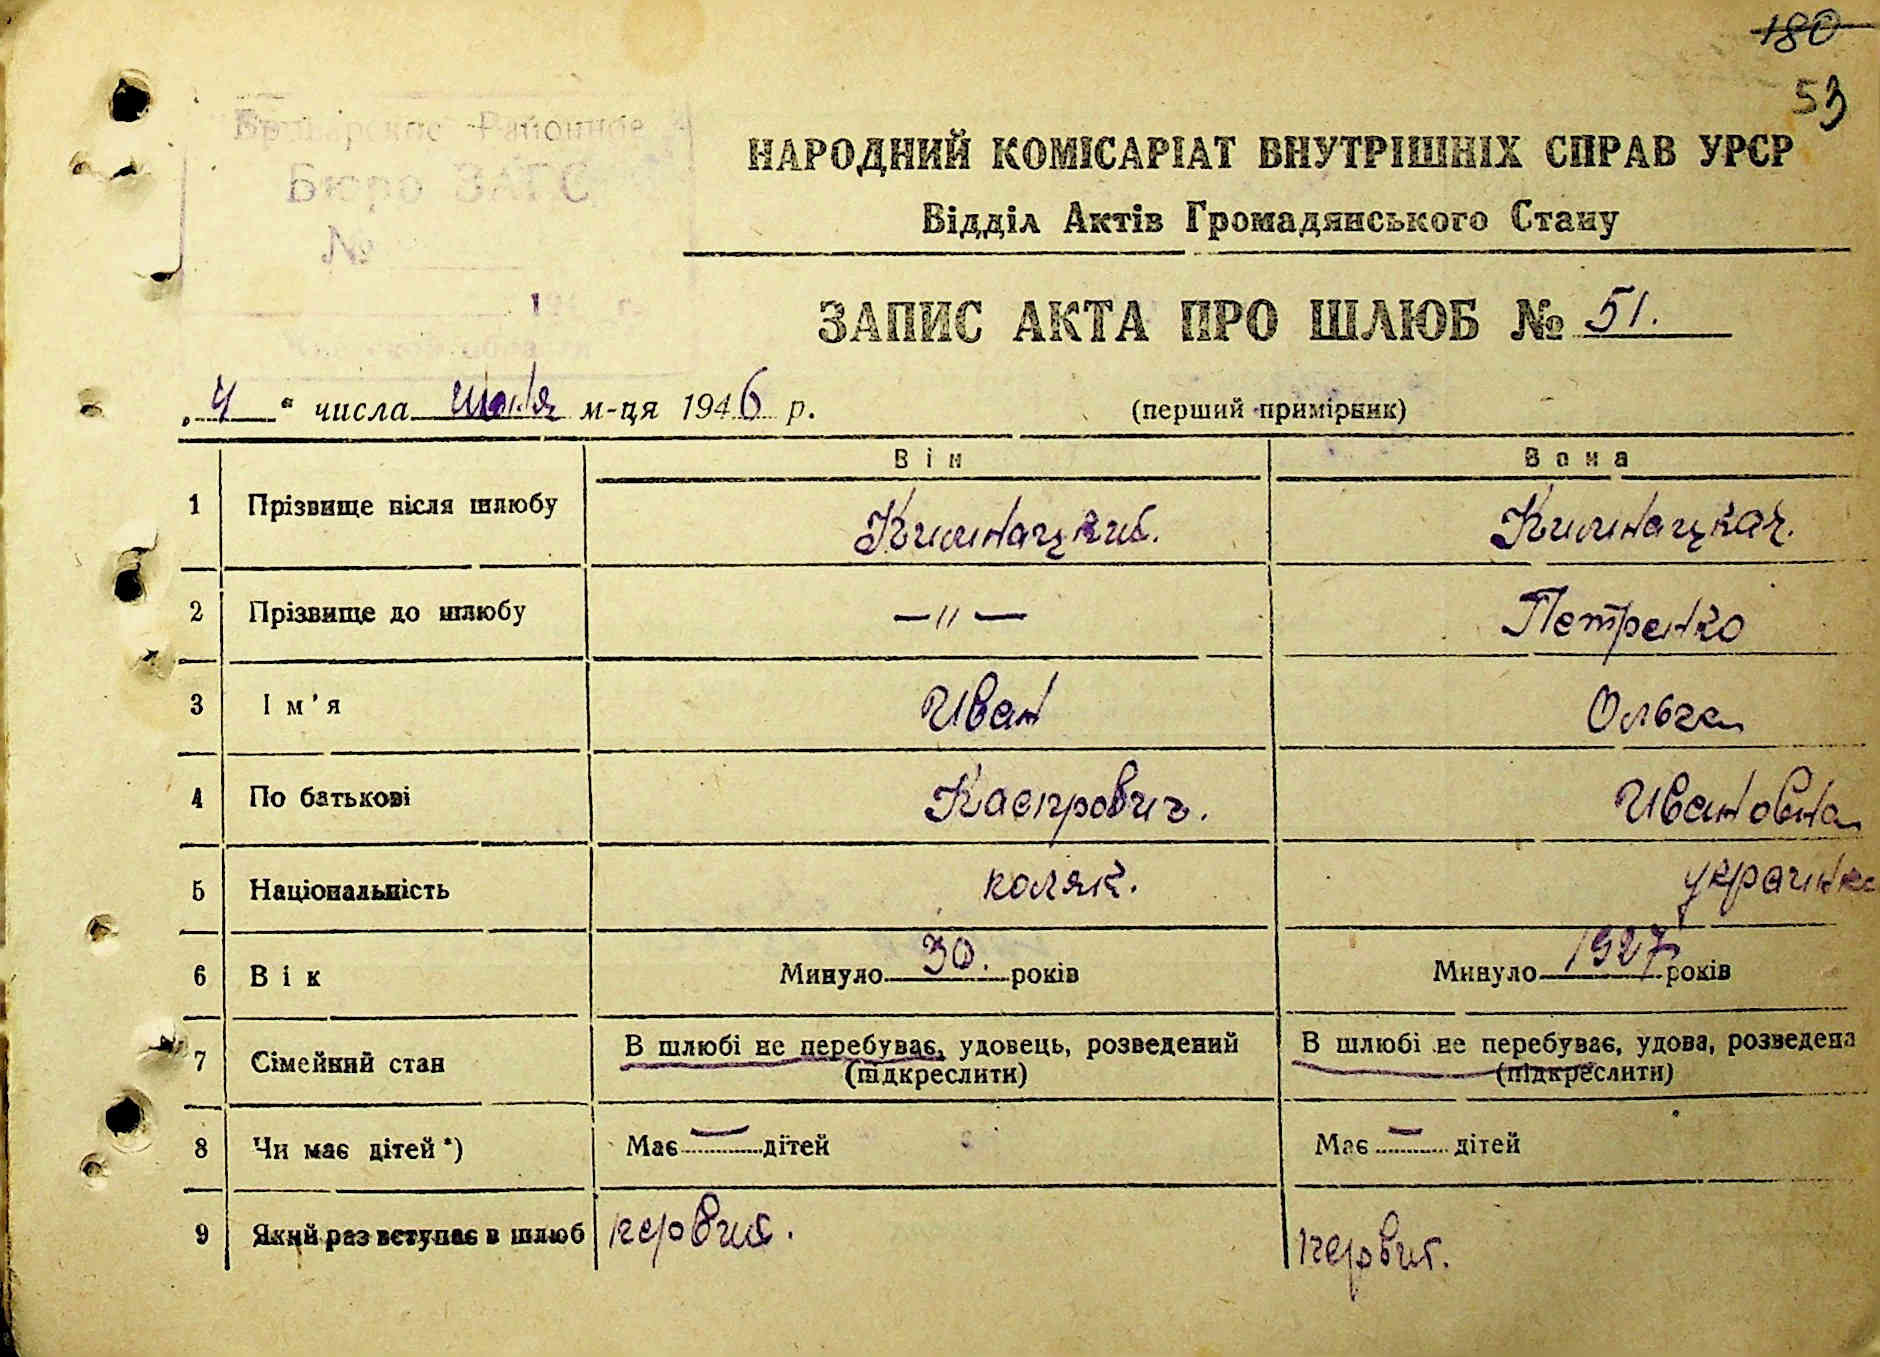 180
53
Районное
Бюро ЗАГС
№
НАРОДНИЙ КОМІСАРІАТ ВНУТРІШНІХ СПРАВ УРСР
Відділ Актів Громадянського Стану
ЗАПИС АКТА ПРО ШЛЮБ № 51.
„ 4 “ числа м-ця 1946 р.
(перший примірник)
Він Вона
1 Прізвище після шлюбу
2 Прізвище до шлюбу —〃— Петренко
3 Ім'я Иван Ольга
4 По батькові Каспрович. Ивановна
5 Національність поляк. украинка
6 Вік Минуло 30. років Минуло 1927 років
7 Сімейний стан В шлюбі не перебуває, удовець, розведений В шлюбі не перебуває, удова, розведена
(підкреслити) (підкреслити)
8 Чи має дітей *) Має — дітей Має — дітей
9 Який раз вступає в шлюб первый. первый.